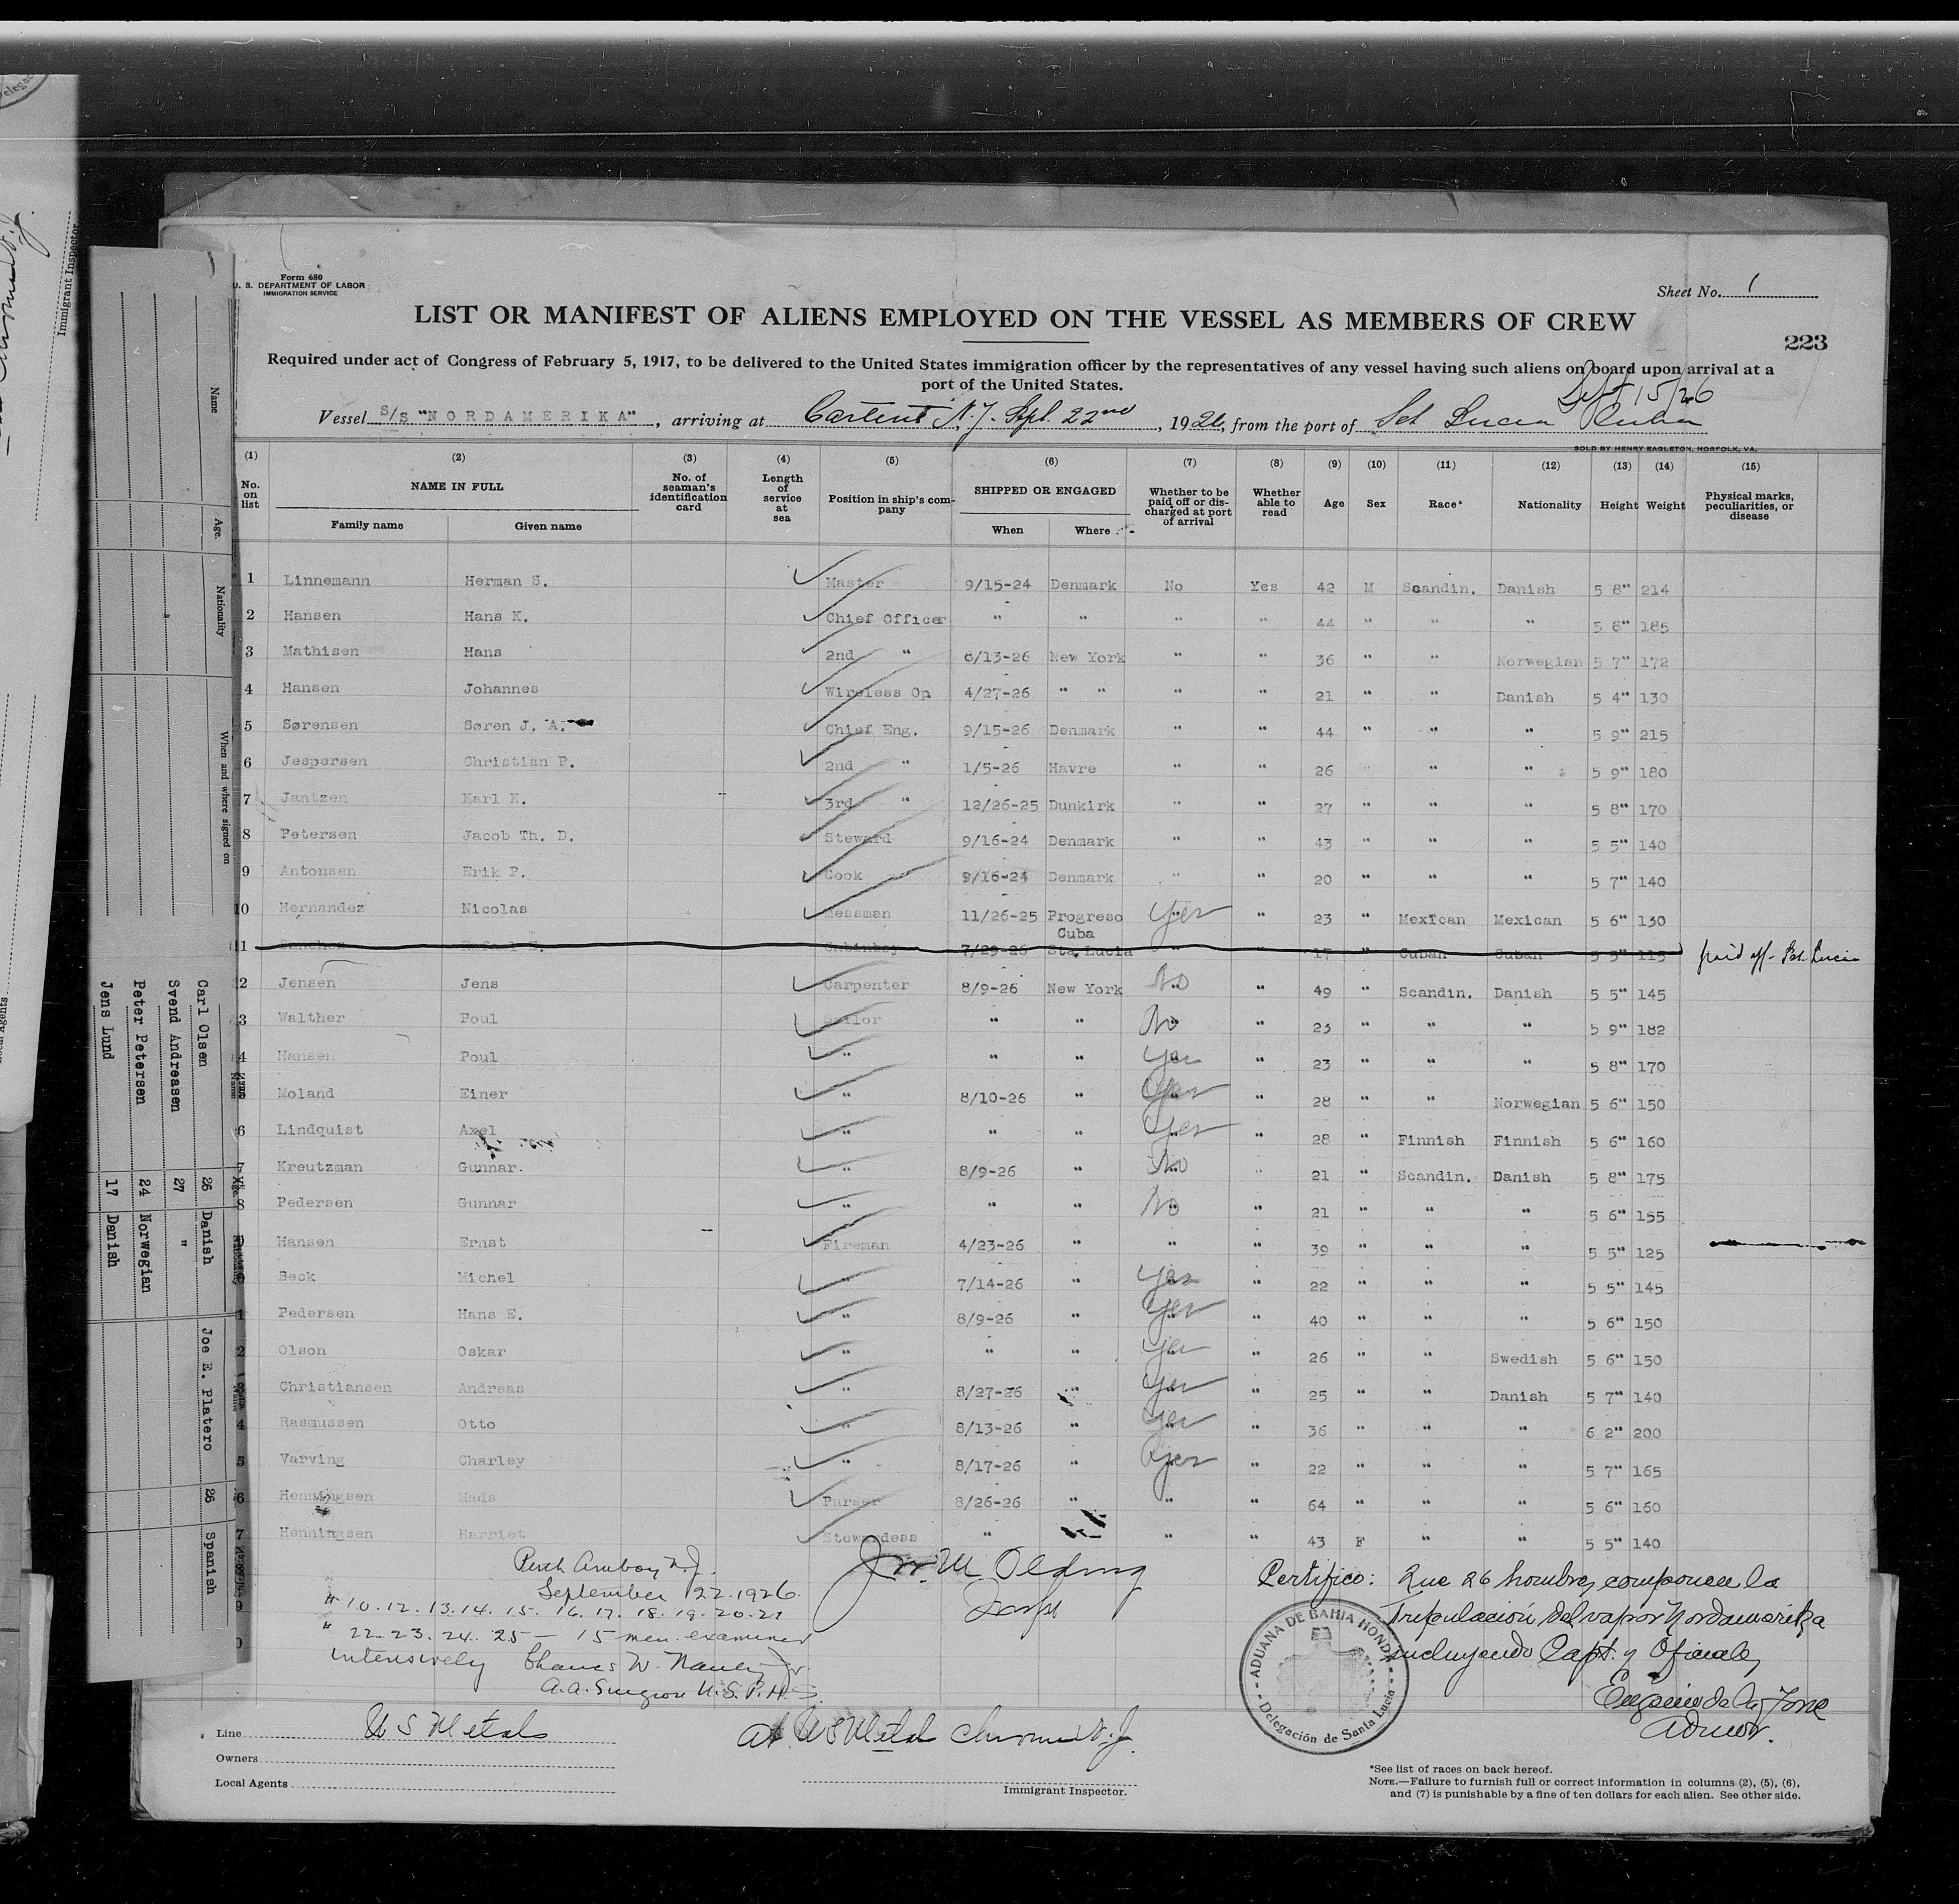 Form 680
U. S. DEPARTMENT OF LABOR
IMMIGRATION SERVICE
Sheet No. 1
LIST OR MANIFEST OF ALIENS EMPLOYED ON THE VESSEL AS MEMBERS OF CREW
223
Required under act of Congress of February 5, 1917, to be delivered to the United States immigration officer by the representatives of any vessel having such aliens on board upon arrival at a
port of the United States.
Sept 15/26
Vessel S/S "NORDAMERIKA", arriving at N.J. Sept. 22nd, 1926, from the port of Sta Lucia Cuba
SOLD BY HENRY EAGLETON, NORFOLK, VA.
(1) (2) (3) (4) (5) (6) (7) (8) (9) (10) (11) (12) (13) (14) (15)
No. on list NAME IN FULL No. of seaman's identification card Length of service at sea Position in ship's company SHIPPED OR ENGAGED Whether to be paid off or discharged at port of arrival Whether able to read Age Sex Race* Nationality Height Weight Physical marks, peculiarities, or disease
Family name Given name When Where
1 Linnemann Herman S. Master 9/15-24 Denmark No Yes 42 M Scandin. Danish 5 8" 214
2 Hansen Hans K. Chief Officer " " " " 44 " " " 5 6" 185
3 Mathisen Hans 2nd " 8/13-26 New York " " 36 " " Norwegian 5 7" 172
4 Hansen Johannes Wireless Op 4/27-26 " " " " 21 " " Danish 5 4" 130
5 Sørensen Søren J. A. Chief Eng. 9/15-26 Denmark " " 44 " " " 5 9" 215
6 Jespersen Christian P. 2nd " 1/5-26 Havre " " 26 " " " 5 9" 180
7 Jantzen Karl K. 3rd " 12/26-25 Dunkirk " " 27 " " " 5 8" 170
8 Petersen Jacob Th. D. Steward 9/16-24 Denmark " " 43 " " " 5 5" 140
9 Antonsen Erik P. Cook 9/16-24 Denmark " " 20 " " " 5 7" 140
10 Hernandez Nicolas Messman 11/26-25 Progreso Yes " 23 " Mexican Mexican 5 6" 130
Cuba
11 Cabinboy 7/29-26 Sta. Lucia " 17 " Cuban Cuban 5 5" 115 paid off - Sta. Lucia
2 Jensen Jens Carpenter 8/9-26 New York No " 49 " Scandin. Danish 5 5" 145
3 Walther Poul Sailor " " No " 23 " " " 5 9" 182
4 Hansen Poul " " " Yes " 23 " " " 5 8" 170
Moland Einer " 8/10-26 " Yes " 28 " " Norwegian 5 6" 150
6 Lindquist Axel " " " Yes " 28 " Finnish Finnish 5 6" 160
7 Kreutzman Gunnar. " 8/9-26 " No " 21 " Scandin. Danish 5 8" 175
8 Pedersen Gunnar " " " No " 21 " " " 5 6" 155
9 Hansen Ernst Fireman 4/23-26 " " " 39 " " " 5 5" 125
0 Beck Michel " 7/14-26 " Yes " 22 " " " 5 5" 145
1 Pedersen Hans E. " 8/9-26 " Yes " 40 " " " 5 6" 150
2 Olson Oskar " " " Yes " 26 " " Swedish 5 6" 150
3 Christiansen Andreas " 8/27-26 " Yes " 25 " " Danish 5 7" 140
4 Rasmussen Otto " 8/13-26 " Yes " 36 " " " 6 2" 200
5 Varving Charley " 8/17-26 " Yes " 22 " " " 5 7" 165
6 Henningsen Mads Purser 8/26-26 " " " 64 " " " 5 6" 160
7 Henningsen Harriet Stewardess " " " 43 F " " 5 5" 140
Perth Amboy N.J.
September 22.1926.
# 10.12.13.14. 15. 16. 17. 18. 19. 20. 21
" 22-23. 24. 25 - 15 men examined
intensively
A.A. Surgeon U.S.P.H.S.
Jno. M Olding
Certifico: Que 26 hombres componen la
Tripulación del vapor Nordamerika
incluyendo Capt. y Oficiales
Admor.
ADUANA DE BAHIA HONDA
Delegación de Santa Lucia
Line U S Metals
At US Metals Chrome N.J.
Owners
Local Agents
Immigrant Inspector.
*See list of races on back hereof.
NOTE.—Failure to furnish full or correct information in columns (2), (5), (6),
and (7) is punishable by a fine of ten dollars for each alien. See other side.
Name Age. Nationality When and where signed on
Carl Olsen 26 Danish
Svend Andreasen 27 "
Peter Petersen 24 Norwegian
Jens Lund 17 Danish
Joe E. Platero 26 Spanish
Immigrant Inspector.
Local Agents